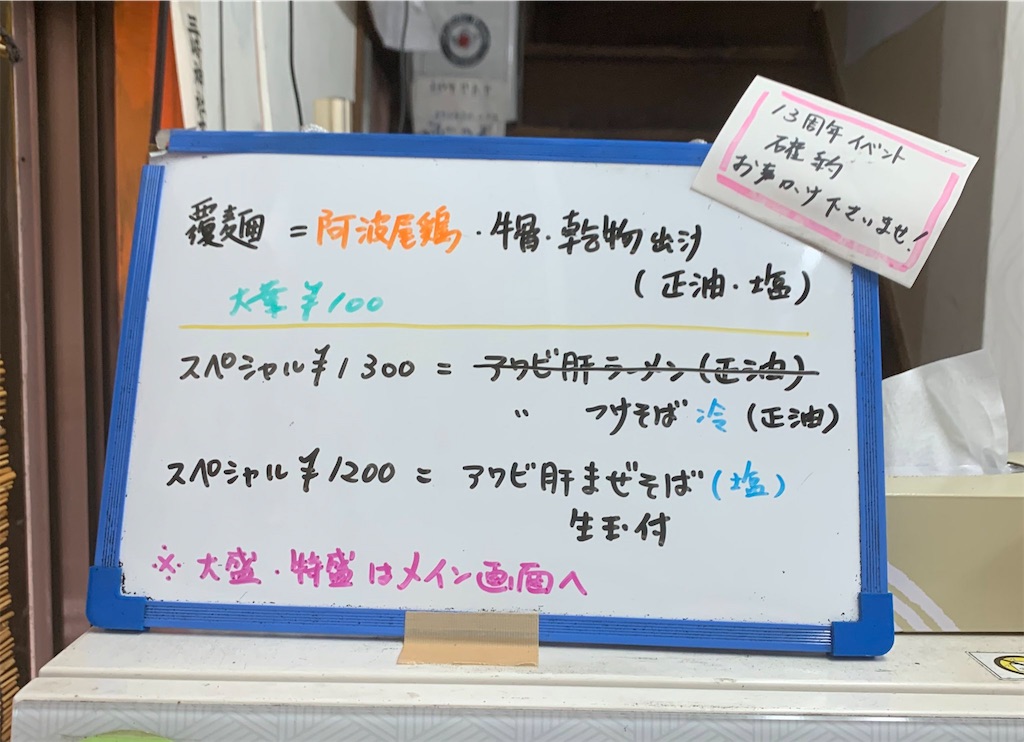 13周年イベント
確約
お声かけ下さいませ!
覆麺 = 阿波尾鶏・牛骨・乾物出汁
(正油・塩)
大葉 ¥100
スペシャル ¥1300 = アワビ肝ラーメン (正油)
〃 つけそば 冷 (正油)
スペシャル ¥1200 = アワビ肝まぜそば (塩)
生玉付
※ 大盛・特盛はメイン画面へ